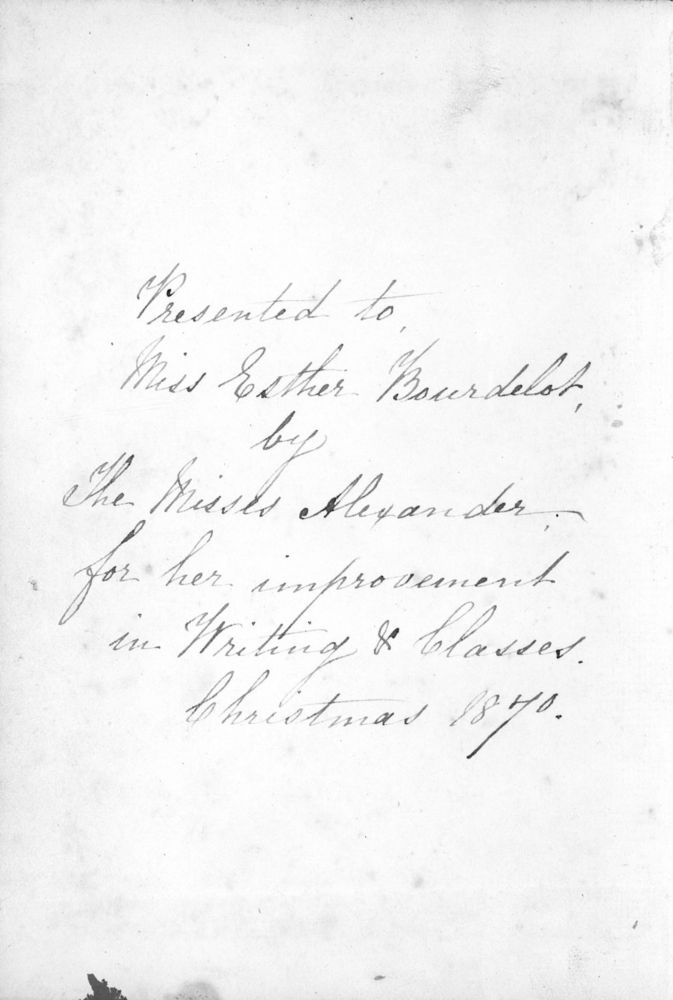 Presented to,
Miss Esther Bourdelot,
by
The Misses Alexander,—
for her improvement
in Writing & Classes.
Christmas 1870.